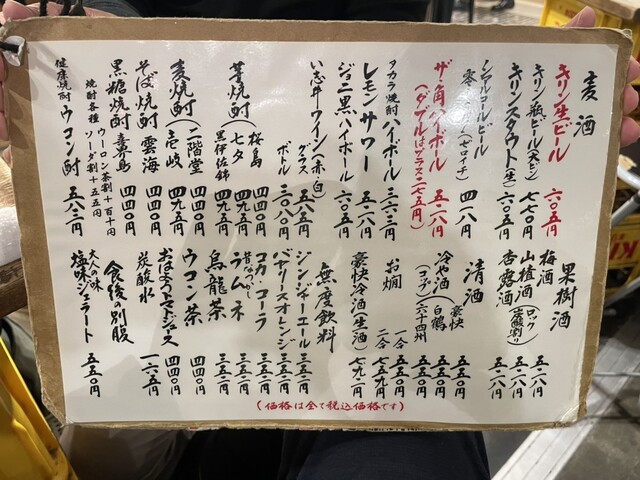 麦酒
キリン生ビール 六〇五円
キリン瓶ビール(大モン) 七七〇円
キリンスタウト(生) 六〇五円
ノンアルコールビール
零(ゼロイチ) 四一八円
ザ・角ハイボール 五二八円
(ダブルはプラス二七五円)
タカラ焼酎ハイボール 三六三円
レモンサワー 五二八円
ジョニ黒ハイボール 六〇五円
いゝ井ワイン(赤・白)
グラス 五八三円
ボトル 三〇八〇円
芋焼酎
桜島 四四〇円
七夕 四九五円
黒伊佐錦 四九五円
麦焼酎
二階堂 四四〇円
壱岐 四九五円
そば焼酎 雲海 四四〇円
黒糖焼酎 喜界島 四四〇円
焼酎各種 ウーロン茶割+百十円
ソーダ割+五五円
健康焼酎 ウコン酎 五八三円
果樹酒
梅酒 五二八円
山楂酒 五二八円
杏露酒 五二八円
(ロック・炭酸割り)
清酒
冷や酒(コップ)
豪快 五五〇円
白鶴 五五〇円
六十四州 五五〇円
お燗
一合 五五〇円
二合 七五九円
豪快冷酒(生酒) 七九二円
無度飲料
ジンジャーエール 三五二円
バヤリースオレンジ 三五二円
コカ・コーラ 三五二円
昔なつかし ラムネ 三五二円
烏龍茶 三五二円
ウコン茶 四四〇円
おはようトマトジュース 四四〇円
炭酸水 一六五円
食後の別腹
大人の味
塩味ジェラート 五五〇円
(価格は全て税込価格です)